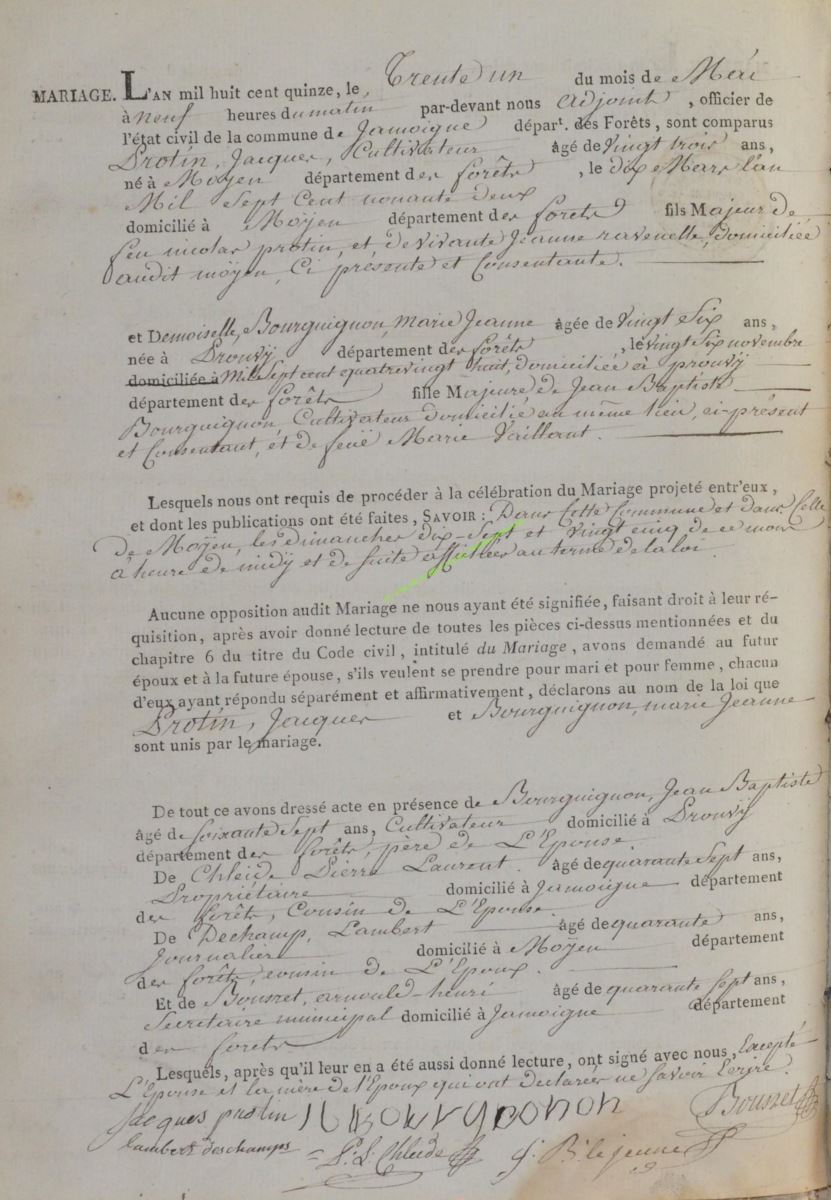 MARIAGE. L'AN mil huit cent quinze, le, Trente un du mois de Mai
à neuf heures du matin par-devant nous adjoint, officier de
l'état civil de la commune de Jamoigne départ. des Forêts, sont comparus
Protin, Jacques, Cultivateur âgé de vingt trois ans,
né à Moÿen département des forêts, le dix Mars l'an
Mil Sept Cent nonante deux
domicilié à Moÿen département des forets fils Majeur de
feu nicolas protin, et de vivante Jeanne ravenelle, domiciliée
audit moÿen, Ci présente et Consentante.
et Demoiselle, Bourguignon, Marie Jeanne âgée de vingt Six ans,
née à Prouvÿ département des forêts, le vingt Six novembre
domiciliée à Mil Sept cent quatrevingt huit, domiciliée à prouvÿ
département des forêts fille Majeure de Jean Baptiste
Bourguignon, Cultivateur domicilié au même lieu, ci-présent
et Consentant, et de feuë Marie Vaillant.
Lesquels nous ont requis de procéder à la célébration du Mariage projeté entr'eux,
et dont les publications ont été faites, SAVOIR: Dans Cette Commune et dans Celle
De Moÿen, les dimanches dix-Sept et vingt cinq de ce mois
à heure de midÿ et de suite affichées au terme de la loi.
Aucune opposition audit Mariage ne nous ayant été signifiée, faisant droit à leur ré-
quisition, après avoir donné lecture de toutes les pièces ci-dessus mentionnées et du
chapitre 6 du titre du Code civil, intitulé du Mariage, avons demandé au futur
époux et à la future épouse, s'ils veulent se prendre pour mari et pour femme, chacun
d'eux ayant répondu séparément et affirmativement, déclarons au nom de la loi que
Protin, Jacques et Bourguignon, marie Jeanne
sont unis par le mariage.
De tout ce avons dressé acte en présence de Bourguignon, Jean Baptiste
âgé de Soixante Sept ans, Cultivateur domicilié à Prouvÿ
département des forêts, père de L'Epouse.
De Chleide Pierre Laurent. âgé de quarante Sept ans,
Propriétaire domicilié à Jamoigne département
des forêts, Cousin de L'Epouse.
De Dechamp, Lambert âgé de quarante ans,
Journalier domicilié à Moÿen département
des forêts, cousin de L'Epoux.
Et de Bousret, arnould-henri âgé de quarante Sept ans,
Secrétaire municipal domicilié à Jamoigne département
des forets
Lesquels, après qu'il leur en a été aussi donné lecture, ont signé avec nous, Excepté
L'Epouse et la mère de l'Epoux qui ont declarées ne savoir Ecrire.
jacques protin Bourgeonon Bousret
lambert deschamps P: L: Chleide J: B: lejeune